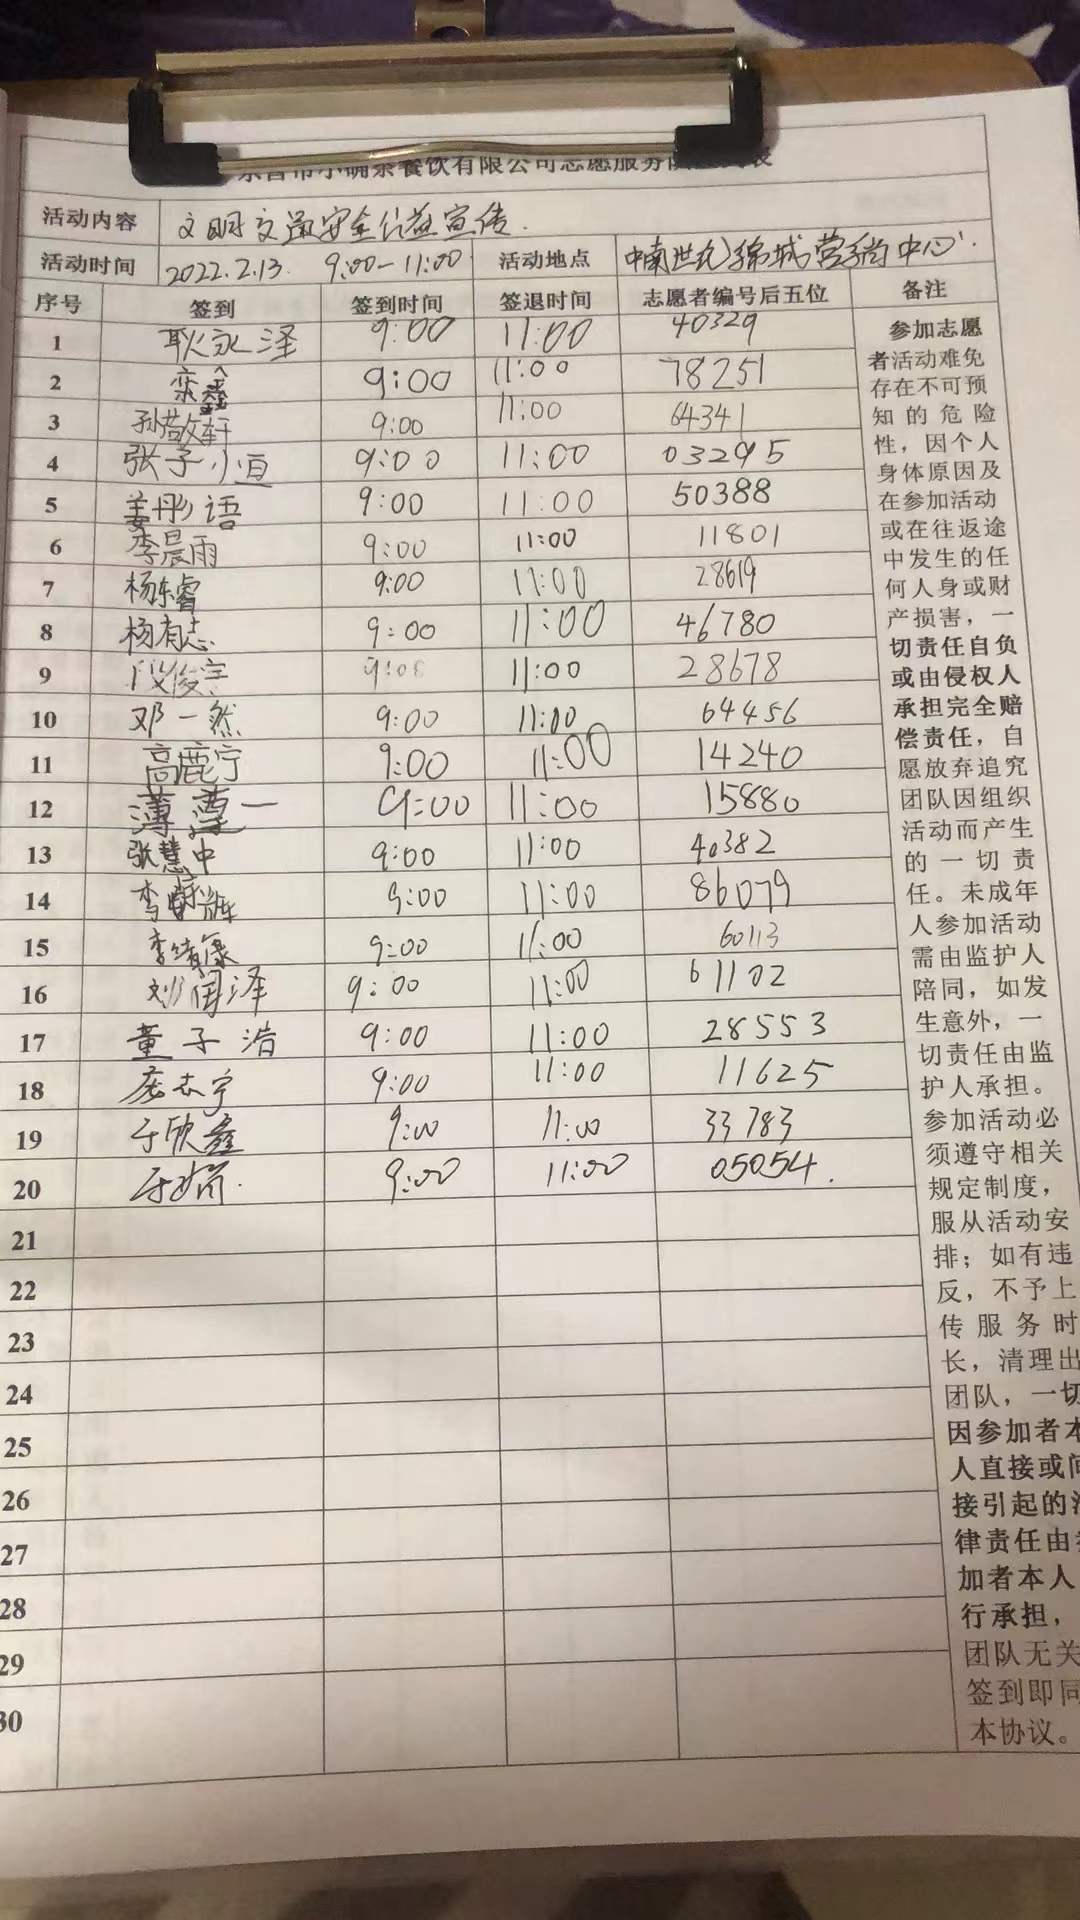 餐饮有限公司志愿服务
活动内容 文明交通安全公益宣传.
活动时间 2022.2.13. 9:00-11:00 活动地点 中南世纪锦城营销中心.
序号 签到 签到时间 签退时间 志愿者编号后五位 备注
1 耿永泽 9:00 11:00 40329
2 栾鑫 9:00 11:00 78251
3 孙敬轩 9:00 11:00 64341
4 张子恒 9:00 11:00 03295
5 姜彤语 9:00 11:00 50388
6 李晨雨 9:00 11:00 11801
7 杨东睿 9:00 11:00 28619
8 杨有志 9:00 11:00 46780
9 段俊宇 9:08 11:00 28678
10 邓一然 9:00 11:00 64456
11 高鹿宁 9:00 11:00 14240
12 薄 一 9:00 11:00 15880
13 张慧中 9:00 11:00 40382
14 李 9:00 11:00 86079
15 李靖康 9:00 11:00 60113
16 刘 泽 9:00 11:00 61102
17 董子浩 9:00 11:00 28553
18 志宇 9:00 11:00 11625
19 于欣鑫 9:00 11:00 33783
20 于 9:00 11:00 05054.
21
22
23
24
25
26
27
28
29
30
参加志愿
者活动难免
存在不可预
知的危险
性，因个人
身体原因及
在参加活动
或在往返途
中发生的任
何人身或财
产损害，一
切责任自负
或由侵权人
承担完全赔
偿责任，自
愿放弃追究
团队因组织
活动而产生
的一切责
任。未成年
人参加活动
需由监护人
陪同，如发
生意外，一
切责任由监
护人承担。
参加活动必
须遵守相关
规定制度，
服从活动安
排；如有违
反，不予上
传服务时
长，清理出
团队，一切
因参加者本
人直接或间
接引起的法
律责任由参
加者本人
行承担，
团队无关
签到即同
本协议。